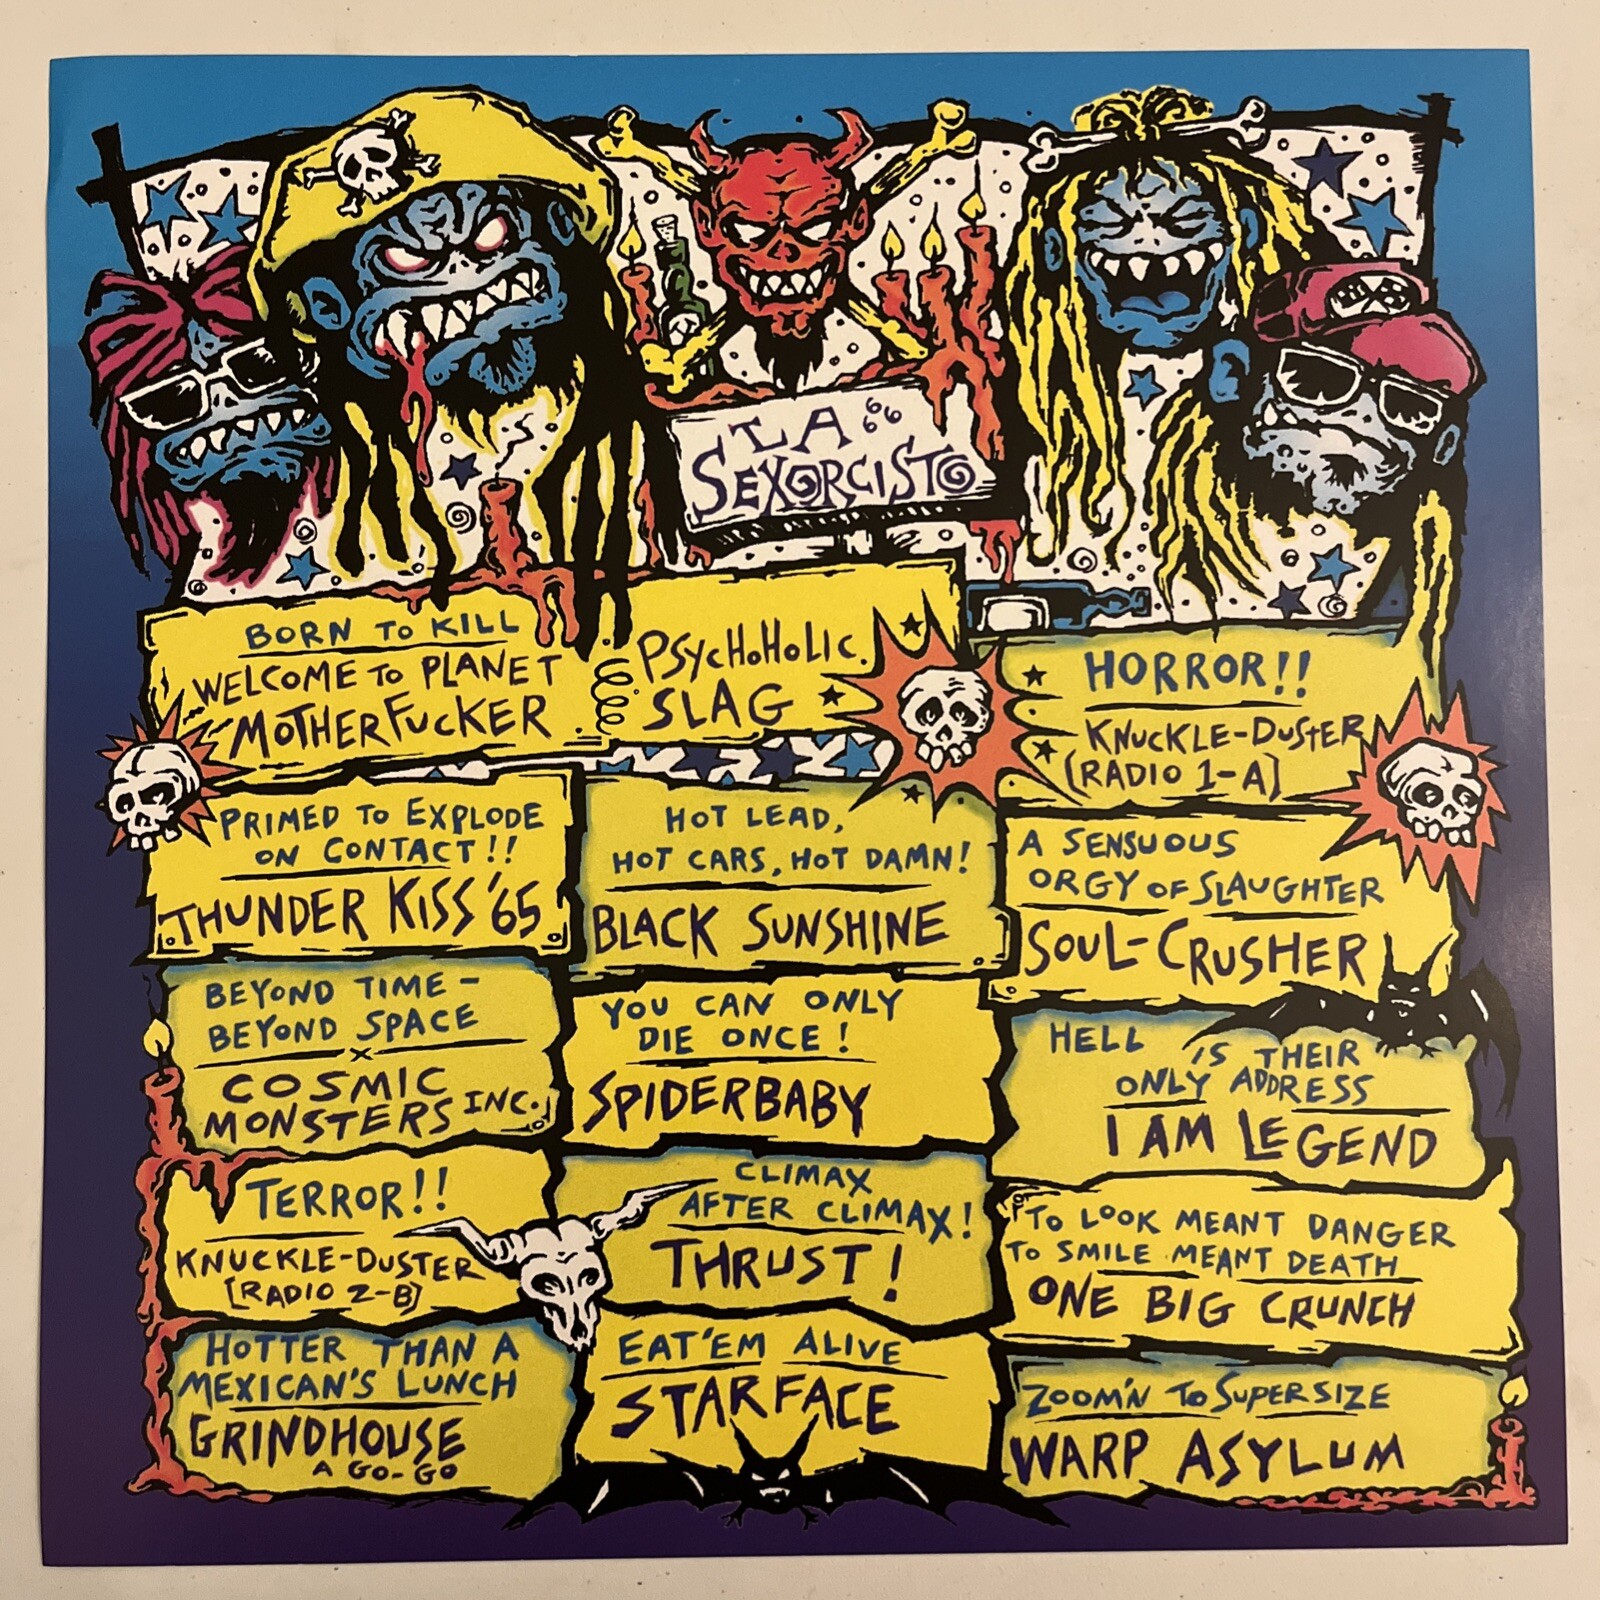 LA 666
SEXORCISTO
BORN TO KILL
WELCOME TO PLANET
MOTHERFUCKER
PSYCHOHOLIC
SLAG
HORROR!!
KNUCKLE-DUSTER
(RADIO 1-A)
PRIMED TO EXPLODE
ON CONTACT!!
THUNDER KISS '65
HOT LEAD,
HOT CARS, HOT DAMN!
BLACK SUNSHINE
A SENSUOUS
ORGY OF SLAUGHTER
SOUL-CRUSHER
BEYOND TIME -
BEYOND SPACE
COSMIC
MONSTERS INC.
YOU CAN ONLY
DIE ONCE!
SPIDERBABY
HELL IS THEIR
ONLY ADDRESS
I AM LEGEND
TERROR!!
KNUCKLE-DUSTER
[RADIO 2-B]
CLIMAX
AFTER CLIMAX!
THRUST!
TO LOOK MEANT DANGER
TO SMILE MEANT DEATH
ONE BIG CRUNCH
HOTTER THAN A
MEXICAN'S LUNCH
GRINDHOUSE
A GO-GO
EAT'EM ALIVE
STARFACE
ZOOM'N TO SUPERSIZE
WARP ASYLUM